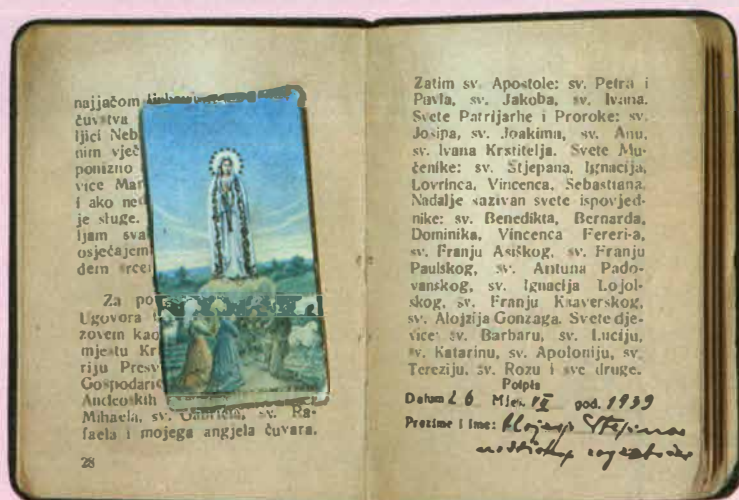 najjačom
čuvstva
ljici Neb
nim vječ
ponizno
vice Mar
i ako ned
je sluge.
ljam sva
osjećajem
dem srcem
Za po
Ugovora
zovem kao
mjestu Kr
riju Presv
Gospodaric
Anđeoskih
Mihaela, sv. Gabriela, sv. Ra-
faela i mojega angjela čuvara.
28
Zatim sv. Apostole: sv. Petra i
Pavla, sv. Jakoba, sv. Ivana.
Svete Patrijarhe i Proroke: sv.
Josipa, sv. Joakima, sv. Anu,
sv. Ivana Krstitelja. Svete Mu-
čenike: sv. Stjepana, Ignacija,
Lovrinca, Vincenca, Sebastiana.
Nadalje sazivan svete ispovjed-
nike: sv. Benedikta, Bernarda,
Dominika, Vincenca Fereri-a,
sv. Franju Asiškog, sv. Franju
Paulskog, sv. Antuna Pado-
vanskog, sv. Ignacija Lojol-
skog, sv. Franju Ksaverskog,
sv. Alojzija Gonzaga. Svete dje-
vice: sv. Barbaru, sv. Luciju,
sv. Katarinu, sv. Apoloniju, sv.
Tereziju, sv. Rozu i sve druge.
Potpis
Datum 26 Mjes. IX god. 1939
Prezime i ime: Alojzije Stepinac